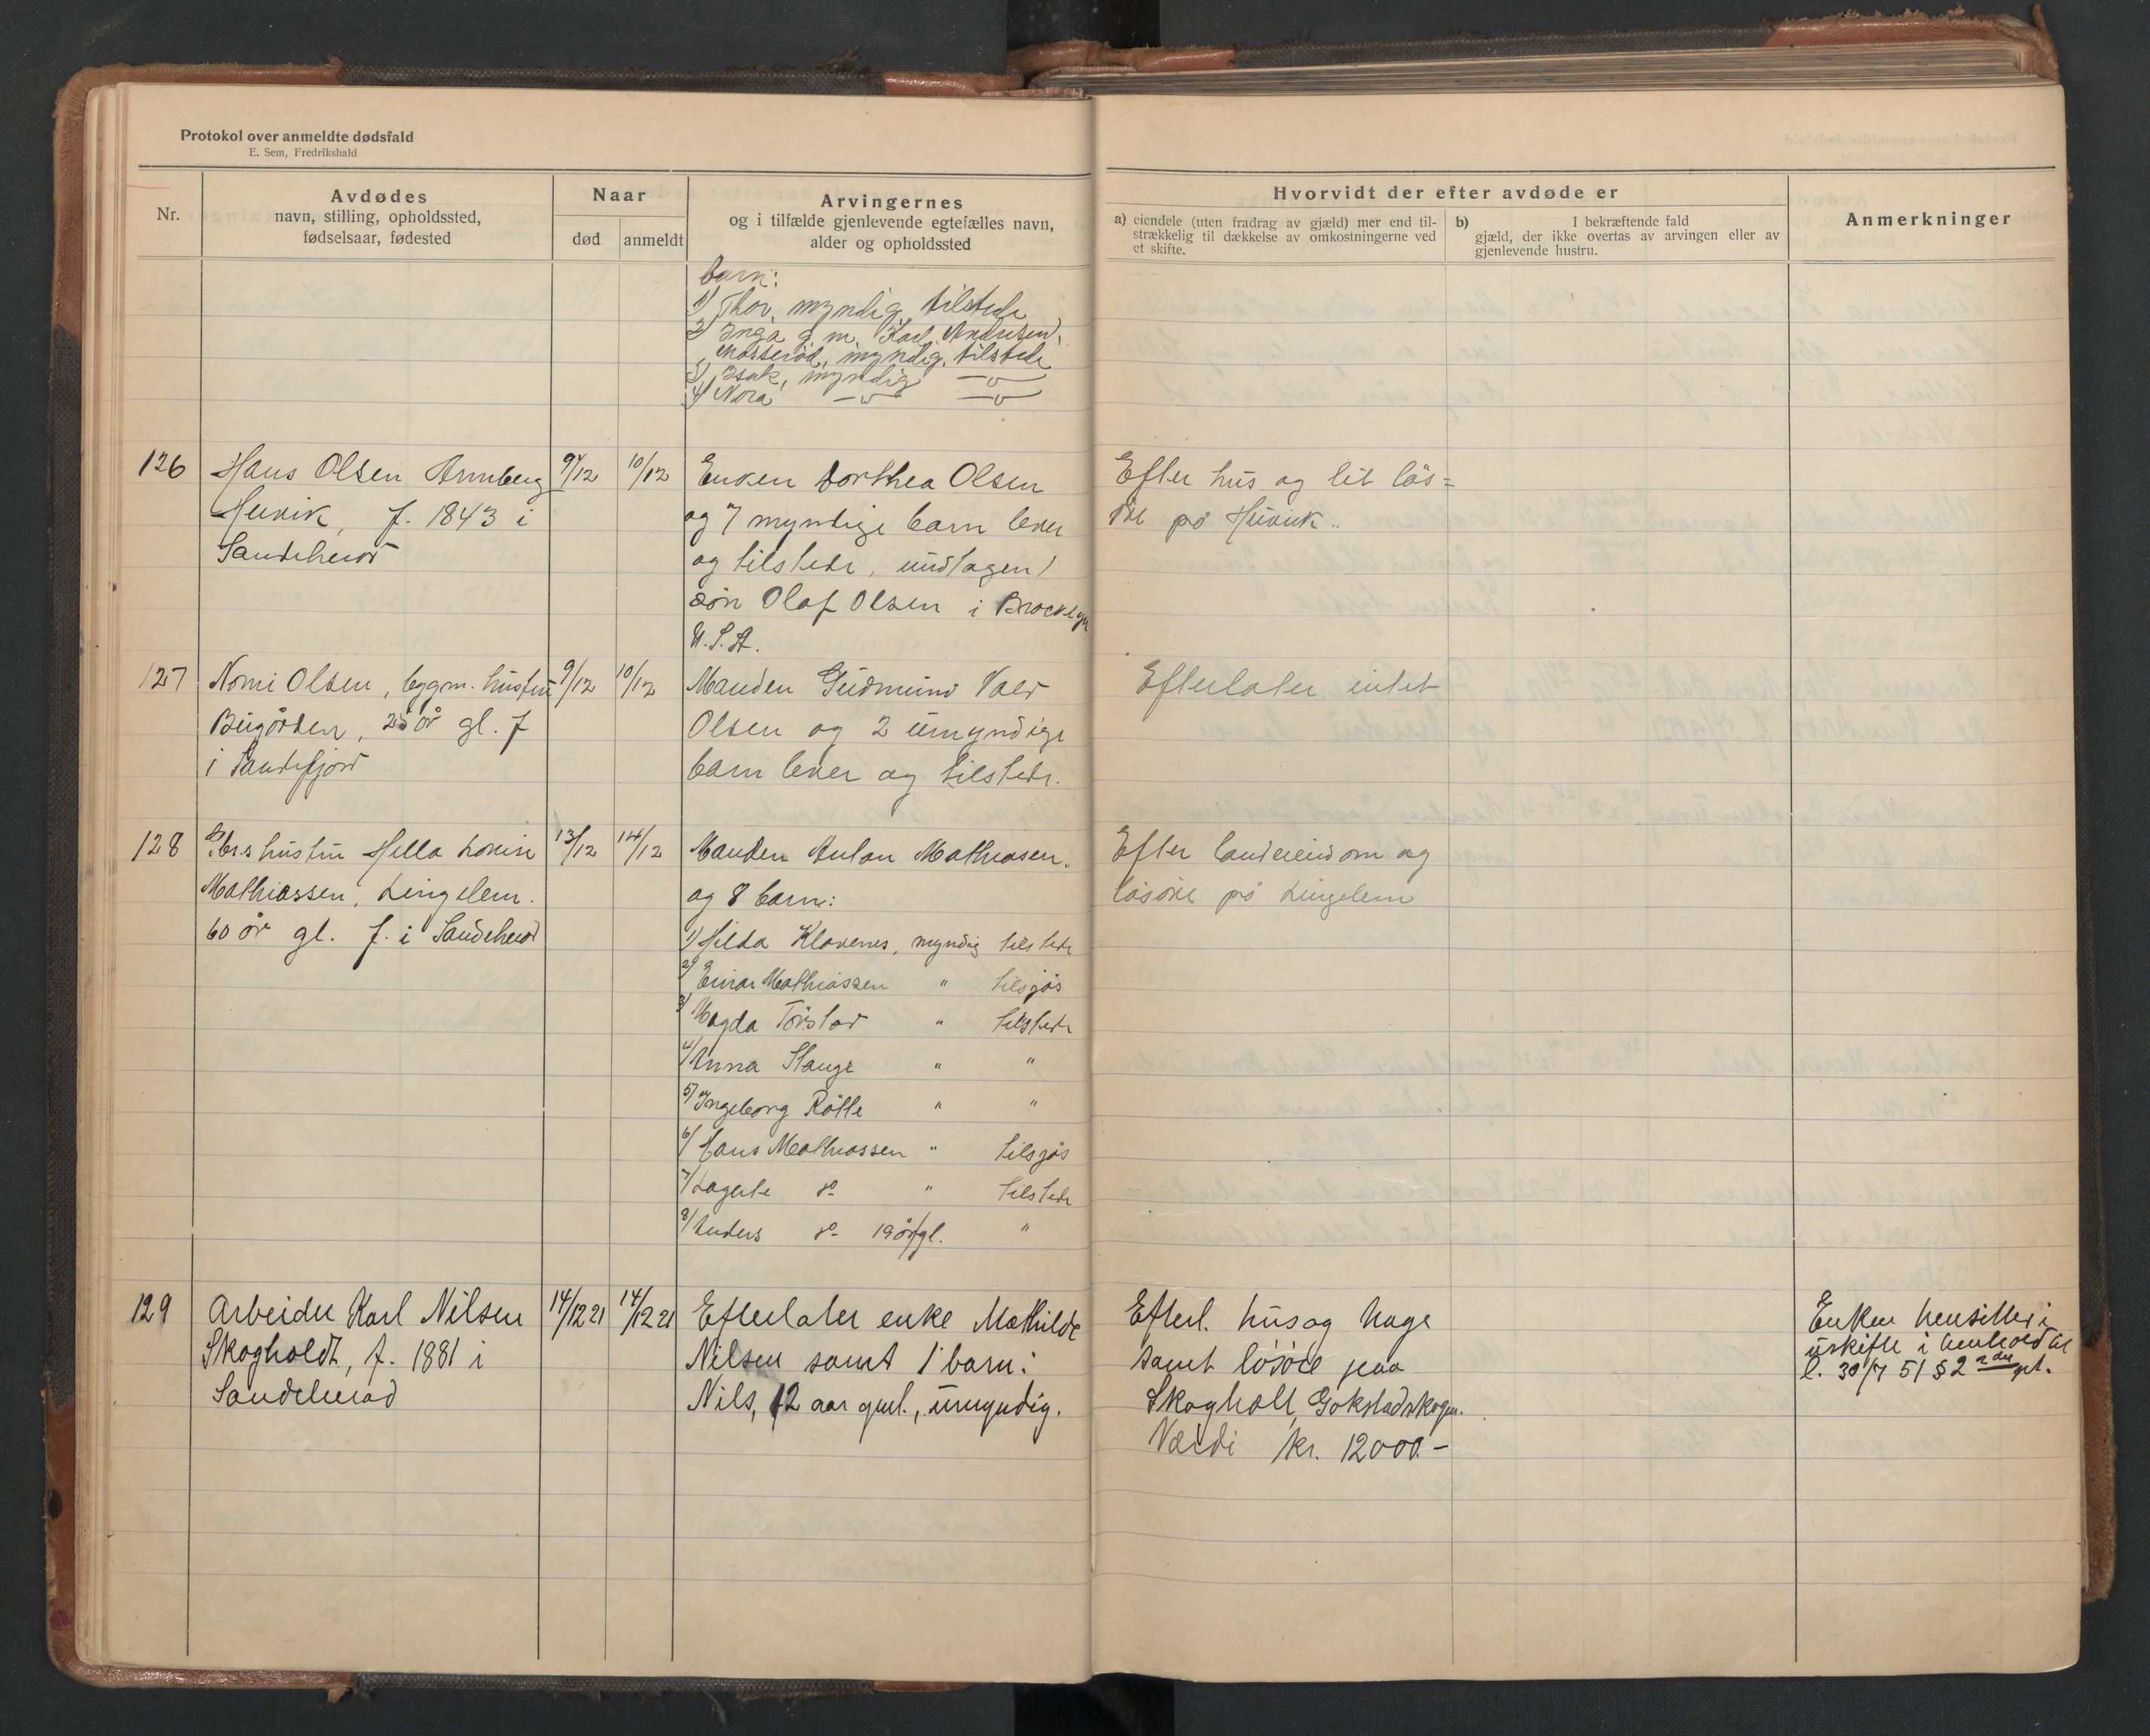 Protokol over anmeldte dødsfald
E. Sem, Fredrikshald
Nr.
Avdødes
navn, stilling, opholdssted,
fødselsaar, fødested
Naar
død
anmeldt
Arvingernes
og i tilfælde gjenlevende egtefælles navn,
alder og opholdssted
Hvorvidt der efter avdøde er
a) eiendele (uten fradrag av gjæld) mer end til-
strækkelig til dækkelse av omkostningerne ved
et skifte.
b) I bekræftende fald
gjæld, der ikke overtas av arvingen eller av
gjenlevende hustru.
Anmerkninger
barn:
1) Thor, myndig tilstede
2) Inga g. m. Karl Andersen,
Mosserød, myndig. tilstede
3) Isak, myndig —"—
4) Nora —"— —"—
126
Hans Olsen
Huvik, f. 1843 i
Sandeherad
9/12
10/12
Enken Dorthea Olsen
og 7 myndige barn lever
og tilstede, undtagen 1
søn Olaf Olsen i Brocklyn
U.S.A.
Efter hus og lit løs=
øre på Huvik.
127
Nomi Olsen, bygm. hustru
Bugården, 25 år gl. f
i Sandefjord
9/12
10/12
Manden Gudmund
Olsen og 2 umyndige
barn lever og tilstede.
Efterlater intet
128
hustru Hella Lovise
Mathiassen, Lingelem.
60 år gl. f. i Sandeherad
13/12
14/12
Manden Anton Mathiasen.
og 8 barn:
1) Hilda Klavenes, myndig tilstede
2) Einar Mathiassen " tilsjøs
3) Magda " tilstede
4) Anna Stange " "
5) Ingeborg " "
6) Hans Mathiassen " tilsjøs
7) Lagerte do " tilstede
8) Anders do 19 år gl. "
Efter landeiendom og
løsøre på Lingelem
129
Arbeider Karl Nilsen
Skogholdt, f. 1881 i
Sandeherad
14/12 21
14/12 21
Efterlater enke Mathilde
Nilsen samt 1 barn:
Nils, 12 aar gml., umyndig.
Efterl. hus og hage
samt løsøre paa
Skogholt, Gokstadskogen.
Værdi kr. 12000.-
Enken hensitter i
uskifte i henhold til
l. 30/7 51 § 2 2det pkt.